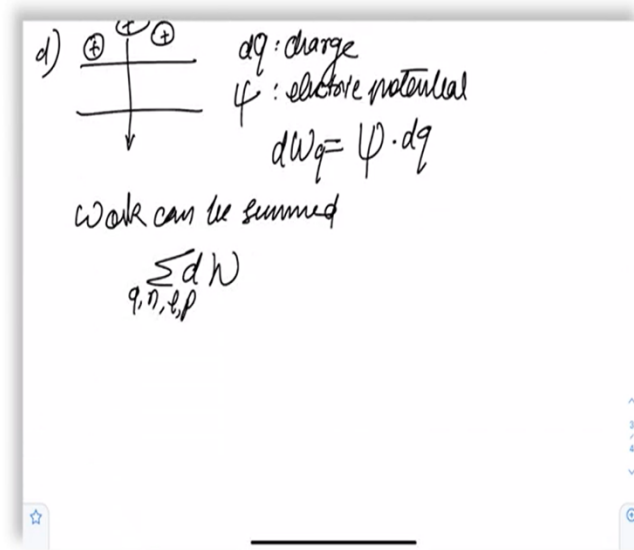 d) + + + dq : charge
ψ : electric potential
dWq = ψ · dq
Work can be summed
∑ dW
q, n, l, p